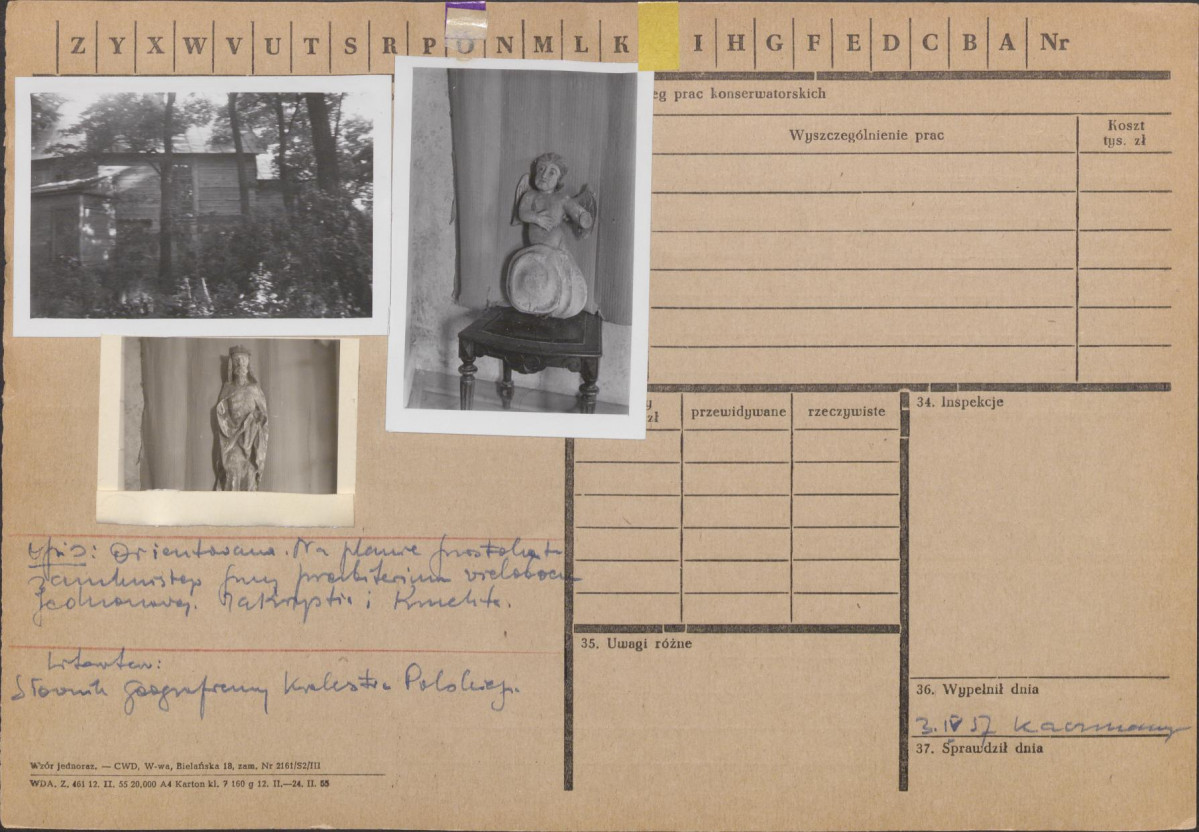 Z Y X W V U T S R P O N M L K I H G F E D C B A Nr
eg prac konserwatorskich
Wyszczególnienie prac
Koszt
tys. zł
zł
przewidywane
rzeczywiste
34. Inspekcje
Opis: Orientowana. Na planie
zamkniętej przy prezbiterium
i
35. Uwagi różne
Literatura:
Słownik geograficzny Królestwa Polskiego.
36. Wypełnił dnia
3. IV 57
37. Sprawdził dnia
Wzór jednoraz. — CWD, W-wa, Bielańska 18, zam. Nr 2161/S2/III
WDA. Z. 461 12. II. 55 20,000 A4 Karton kl. 7 160 g 12. II.—24. II. 55